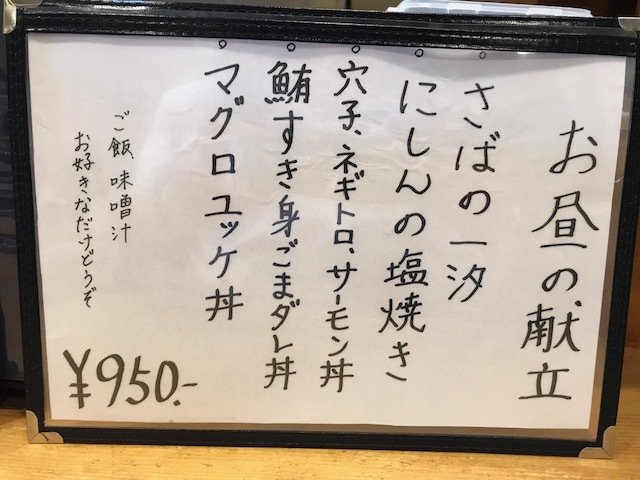 お昼の献立
。さばの一汐
。にしんの塩焼き
。穴子、ネギトロ、サーモン丼
。鮪すき身ごまダレ丼
。マグロユッケ丼
ご飯、味噌汁
お好きなだけどうぞ
¥950.-